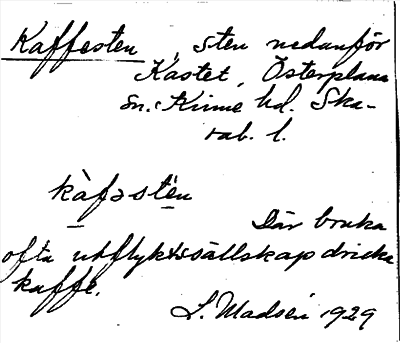 Kaffesten, sten nedanför
Kastet, Österplana
sn. Kinne hd. Ska-
rab. l.
kàfəstên
Där bruka
ofta utflyktssällskap dricka
kaffe.
L. Madsén 1929